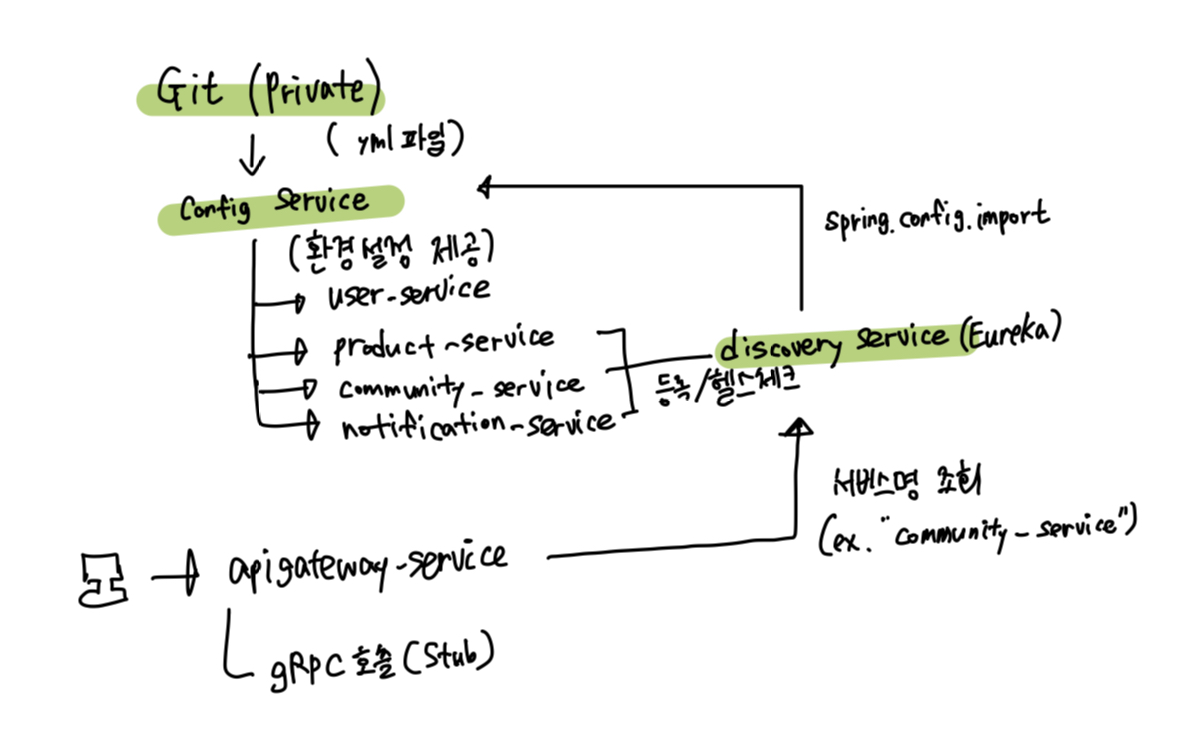 Git (Private)
( yml 파일)
Config Service
(환경설정 제공)
user-service
product-service
community-service
notification-service
spring.config.import
discovery service (Eureka)
등록/헬스체크
서비스명 조회
(ex. "community-service")
apigateway-service
gRPC 호출 (Stub)